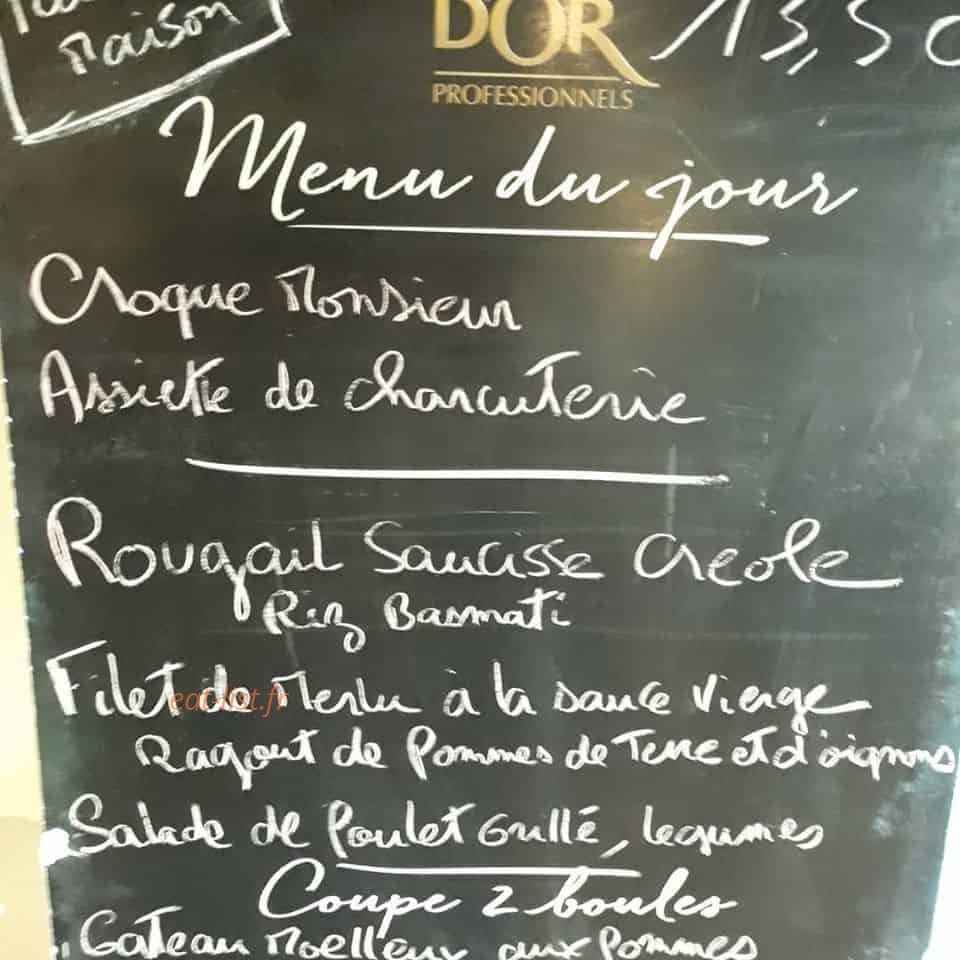 Maison
D'OR
PROFESSIONNELS
13,50
Menu du jour
Croque Monsieur
Assiette de charcuterie
Rougail Saucisse Creole
Riz Basmati
Filet de Merlu à la sauce vierge
eat-list.fr
Ragout de Pommes de Terre et d'oignons
Salade de Poulet Grillé, legumes
Coupe 2 boules
Gateau Moelleux aux Pommes